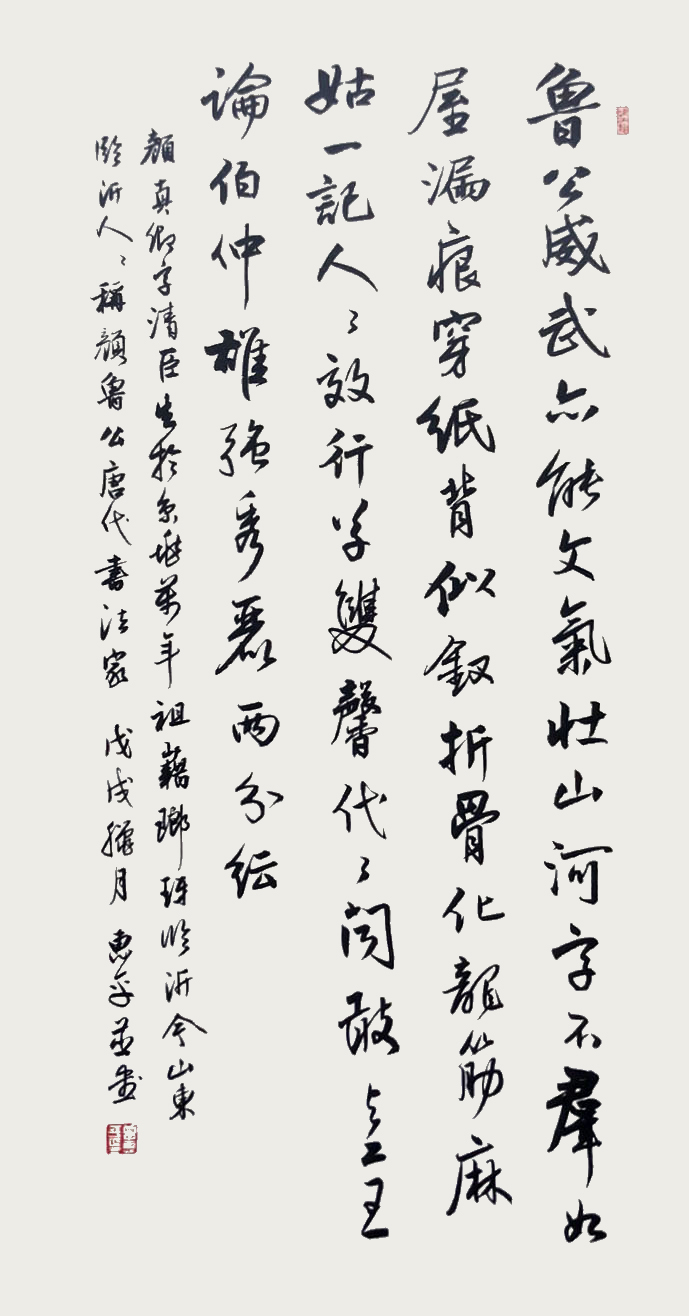 魯公威武亦能文氣壯山河字不群如
屋漏痕穿紙背似釵折骨化龍筋麻
姑一記人々效行草雙馨代々聞敢與二王
論伯仲雄強秀麗兩分紜
顏真卿字清臣生於京兆萬年祖籍瑯琊臨沂今山東
臨沂人々稱顏魯公唐代書法家 戊戌臘月 惠平並書